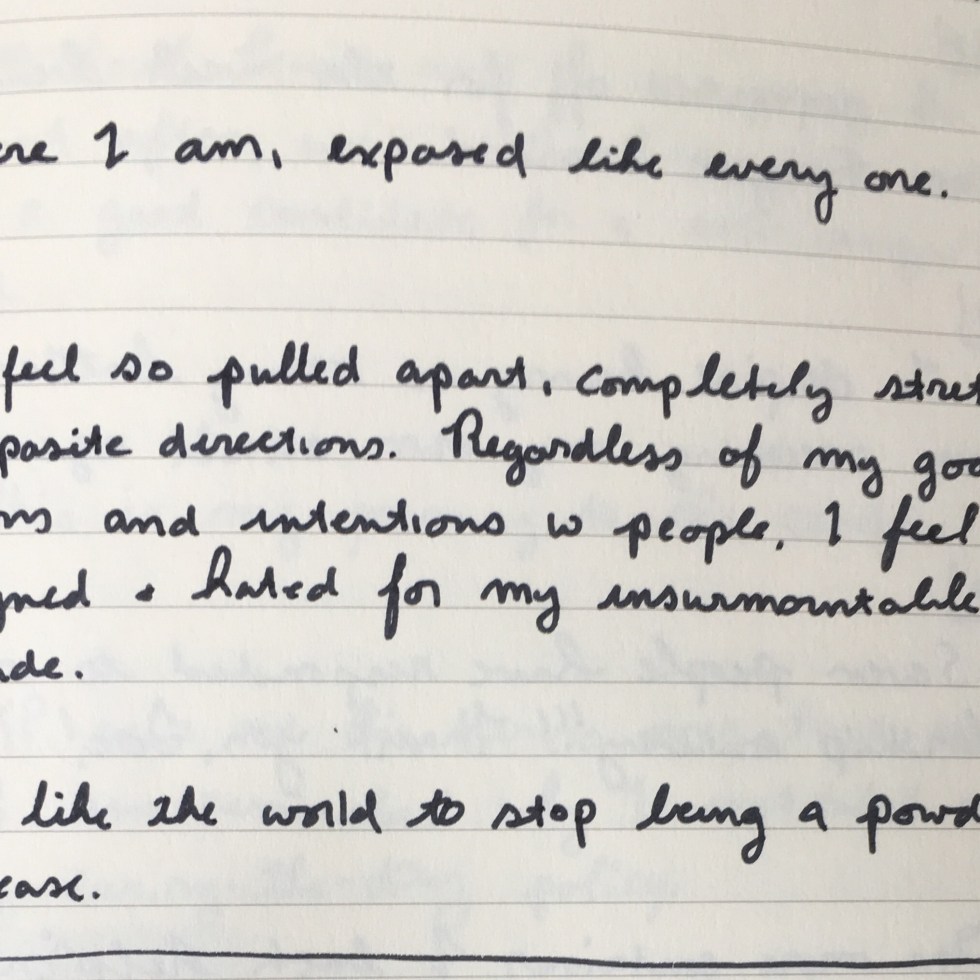 ere I am, exposed like every one.
feel so pulled apart, completely stret
posite directions. Regardless of my goo
ns and intentions w people, I feel
gned & hated for my insurmountable
ade.
like the world to stop being a powd
ease.